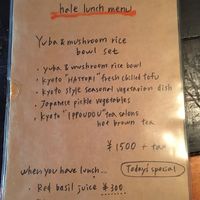 hale lunch menu
Yuba & mushroom rice
bowl set
• yuba & mushroom rice bowl
• Kyoto "HATTORI" fresh chilled tofu
• Kyoto style seasonal vegetarian dish
• Japanese pickle vegetables
• Kyoto "IPPOUDOU" tea salons
hot brown tea
¥1500 + tax
when you have lunch...
Today's special
• Red basil juice ¥300